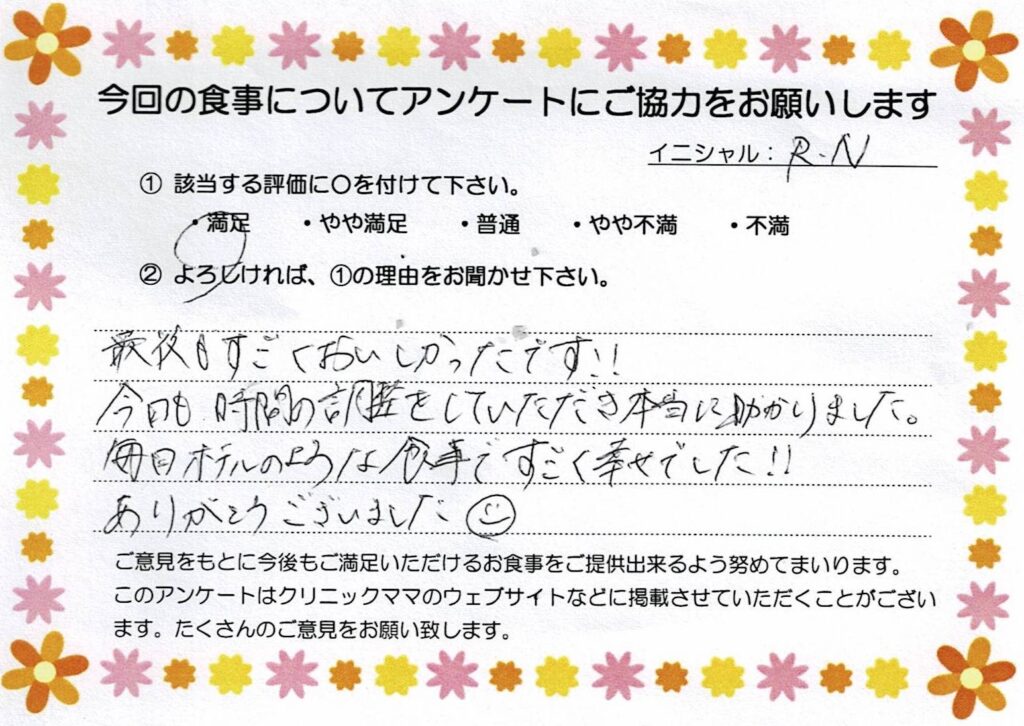 今回の食事についてアンケートにご協力をお願いします
イニシャル: R.N
① 該当する評価に〇を付けて下さい。
・満足 ・やや満足 ・普通 ・やや不満 ・不満
② よろしければ、①の理由をお聞かせ下さい。
最後もすごくおいしかったです!!
今日も時間の調整をしていただき本当に助かりました。
毎日ホテルのような食事ですごく幸せでした!!
ありがとうございました
ご意見をもとに今後もご満足いただけるお食事をご提供出来るよう努めてまいります。
このアンケートはクリニックママのウェブサイトなどに掲載させていただくことがござい
ます。たくさんのご意見をお願い致します。